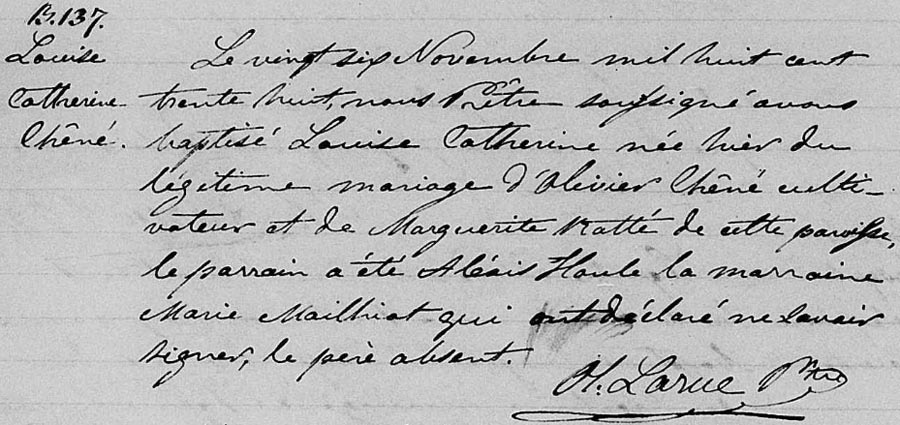 B.137.
Louise
Catherine
Chêné.
Le vingt six Novembre mil huit cent
trente huit, nous Prêtre soussigné avons
baptisé Louise Catherine née hier du
légitime mariage d'Olivier Chêné culti-
vateur et de Marguerite Ratté de cette paroisse,
le parrain a été Alexis Houle la marraine
Marie Mailhiot qui ont déclaré ne savoir
signer, le père absent.
H. Larue Ptre